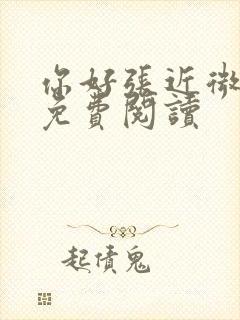 你好張近微
免費閱讀
起債鬼